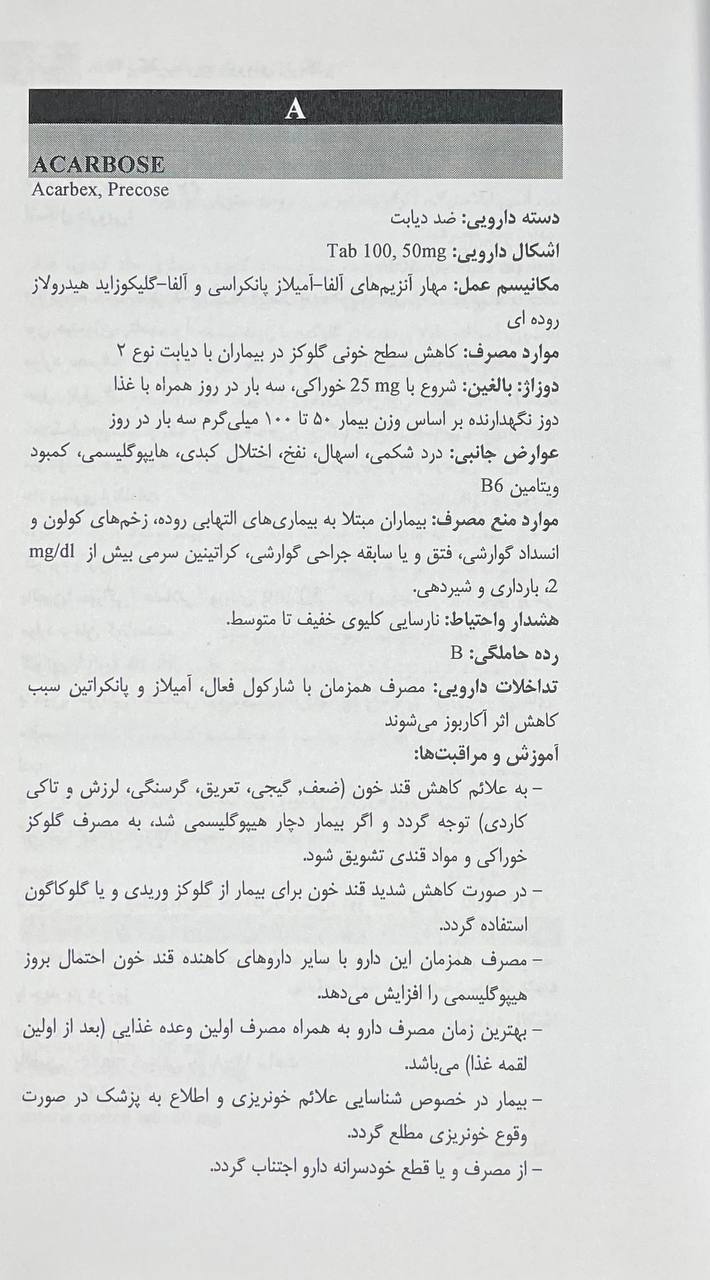 A
ACARBOSE
Acarbex, Precose
دسته دارویی: ضد دیابت
اشکال دارویی: Tab 100, 50mg
مکانیسم عمل: مهار آنزیم‌های آلفا-آمیلاز پانکراسی و آلفا-گلیکوزاید هیدرولاز
روده ای
موارد مصرف: کاهش سطح خونی گلوکز در بیماران با دیابت نوع ۲
دوزاژ: بالغین: شروع با 25 mg خوراکی، سه بار در روز همراه با غذا
دوز نگهدارنده بر اساس وزن بیمار ۵۰ تا ۱۰۰ میلی‌گرم سه بار در روز
عوارض جانبی: درد شکمی، اسهال، نفخ، اختلال کبدی، هایپوگلیسمی، کمبود
ویتامین B6
موارد منع مصرف: بیماران مبتلا به بیماری‌های التهابی روده، زخم‌های کولون و
انسداد گوارشی، فتق و یا سابقه جراحی گوارشی، کراتینین سرمی بیش از mg/dl
2، بارداری و شیردهی.
هشدار واحتیاط: نارسایی کلیوی خفیف تا متوسط.
رده حاملگی: B
تداخلات دارویی: مصرف همزمان با شارکول فعال، آمیلاز و پانکراتین سبب
کاهش اثر آکاربوز می‌شوند
آموزش و مراقبت‌ها:
- به علائم کاهش قند خون (ضعف, گیجی، تعریق، گرسنگی، لرزش و تاکی
کاردی) توجه گردد و اگر بیمار دچار هیپوگلیسمی شد، به مصرف گلوکز
خوراکی و مواد قندی تشویق شود.
- در صورت کاهش شدید قند خون برای بیمار از گلوکز وریدی و یا گلوکاگون
استفاده گردد.
- مصرف همزمان این دارو با سایر داروهای کاهنده قند خون احتمال بروز
هیپوگلیسمی را افزایش می‌دهد.
- بهترین زمان مصرف دارو به همراه مصرف اولین وعده غذایی (بعد از اولین
لقمه غذا) می‌باشد.
- بیمار در خصوص شناسایی علائم خونریزی و اطلاع به پزشک در صورت
وقوع خونریزی مطلع گردد.
- از مصرف و یا قطع خودسرانه دارو اجتناب گردد.